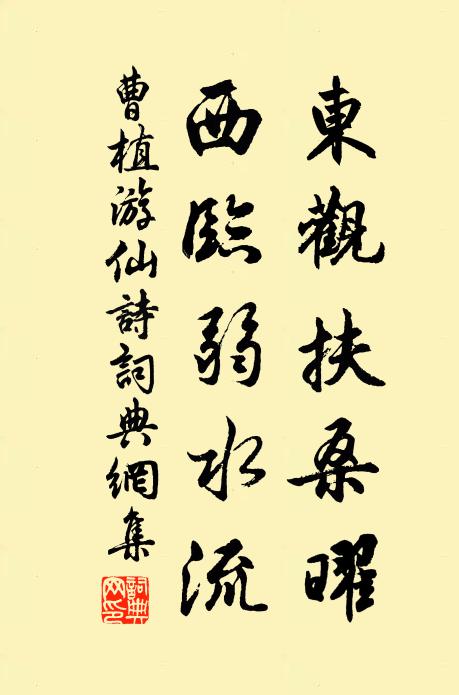 東觀扶桑曜
西臨弱水流
曹植游仙詩詞典網集
詞典網印